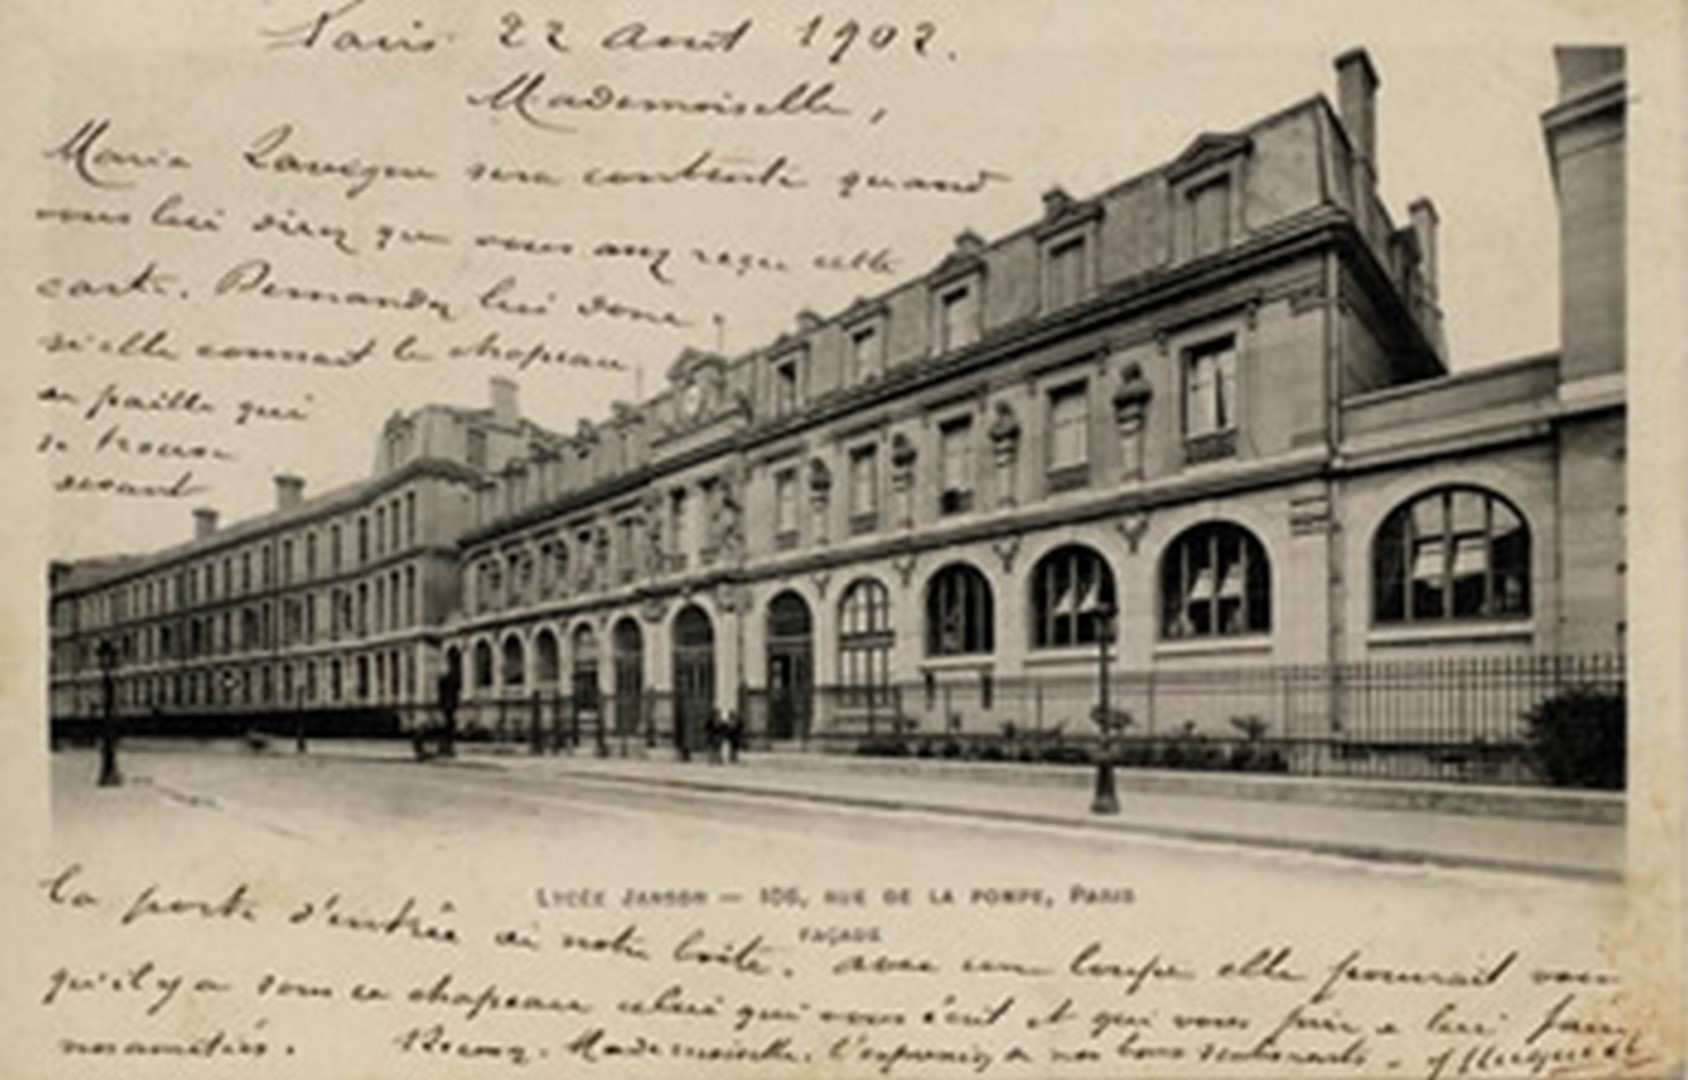 Paris 22 Aout 1902.
Mademoiselle,
Maria Lavergne sera contente quand
vous lui direz que vous avez reçu cette
carte. Demandez lui donc
si elle connait le chapeau
en paille qui
se trouve
devant
LYCÉE JANSON — 106, RUE DE LA POMPE, PARIS
FAÇADE
la porte d'entrée de notre boite. avec une loupe elle pourrait voir
qu'il y a sous ce chapeau celui qui vous écrit et qui vous prie de lui faire
nos amitiés. Recevez, Mademoiselle, l'expression de nos bons sentiments -